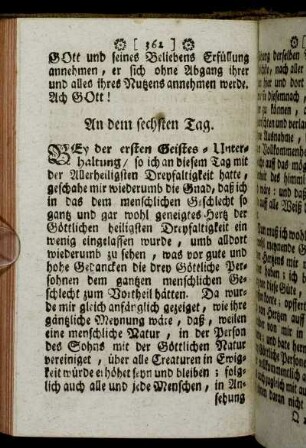 [ 362 ]
GOtt und seines Beliebens Erfüllung
annehmen, er sich ohne Abgang ihrer
und alles ihres Nutzens annehmen werde.
Ach GOtt!
An dem sechsten Tag.
BEy der ersten Geistes-Unter-
haltung / so ich an diesem Tag mit
der Allerheiligsten Dreyfaltigkeit hatte,
geschahe mir wiederumb die Gnad, daß ich
in das dem menschlichen Geschlecht so
gantz und gar wohl geneigtes-Hertz der
Göttlichen heiligsten Dreyfaltigkeit ein
wenig eingelassen wurde, umb alldort
wiederumb zu sehen, was vor gute und
hohe Gedancken die drey Göttliche Per-
sohnen dem gantzen menschlichen Ge-
schlecht zum Vortheil hätten. Da wur-
de mir gleich anfänglich gezeiget, wie ihre
gäntzliche Meynung wäre, daß, weilen
eine menschliche Natur, in der Person
des Sohns mit der Göttlichen Natur
vereiniget, über alle Creaturen in Ewig-
keit würde erhöhet seyn und bleiben: folg-
lich auch alle und jede Menschen, in An-
sehung